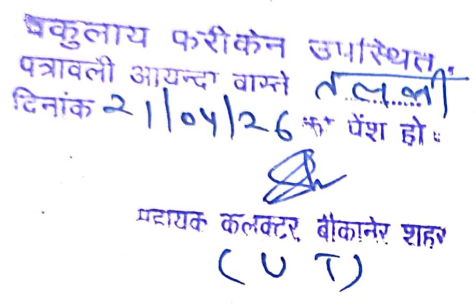 वकुलाय फरीकेन उपस्थित.
पत्रावली आयन्दा वास्ते तलबी
दिनांक 21/04/26 को पेंश हो।
सहायक कलक्टर, बीकानेर शहर
(U T)